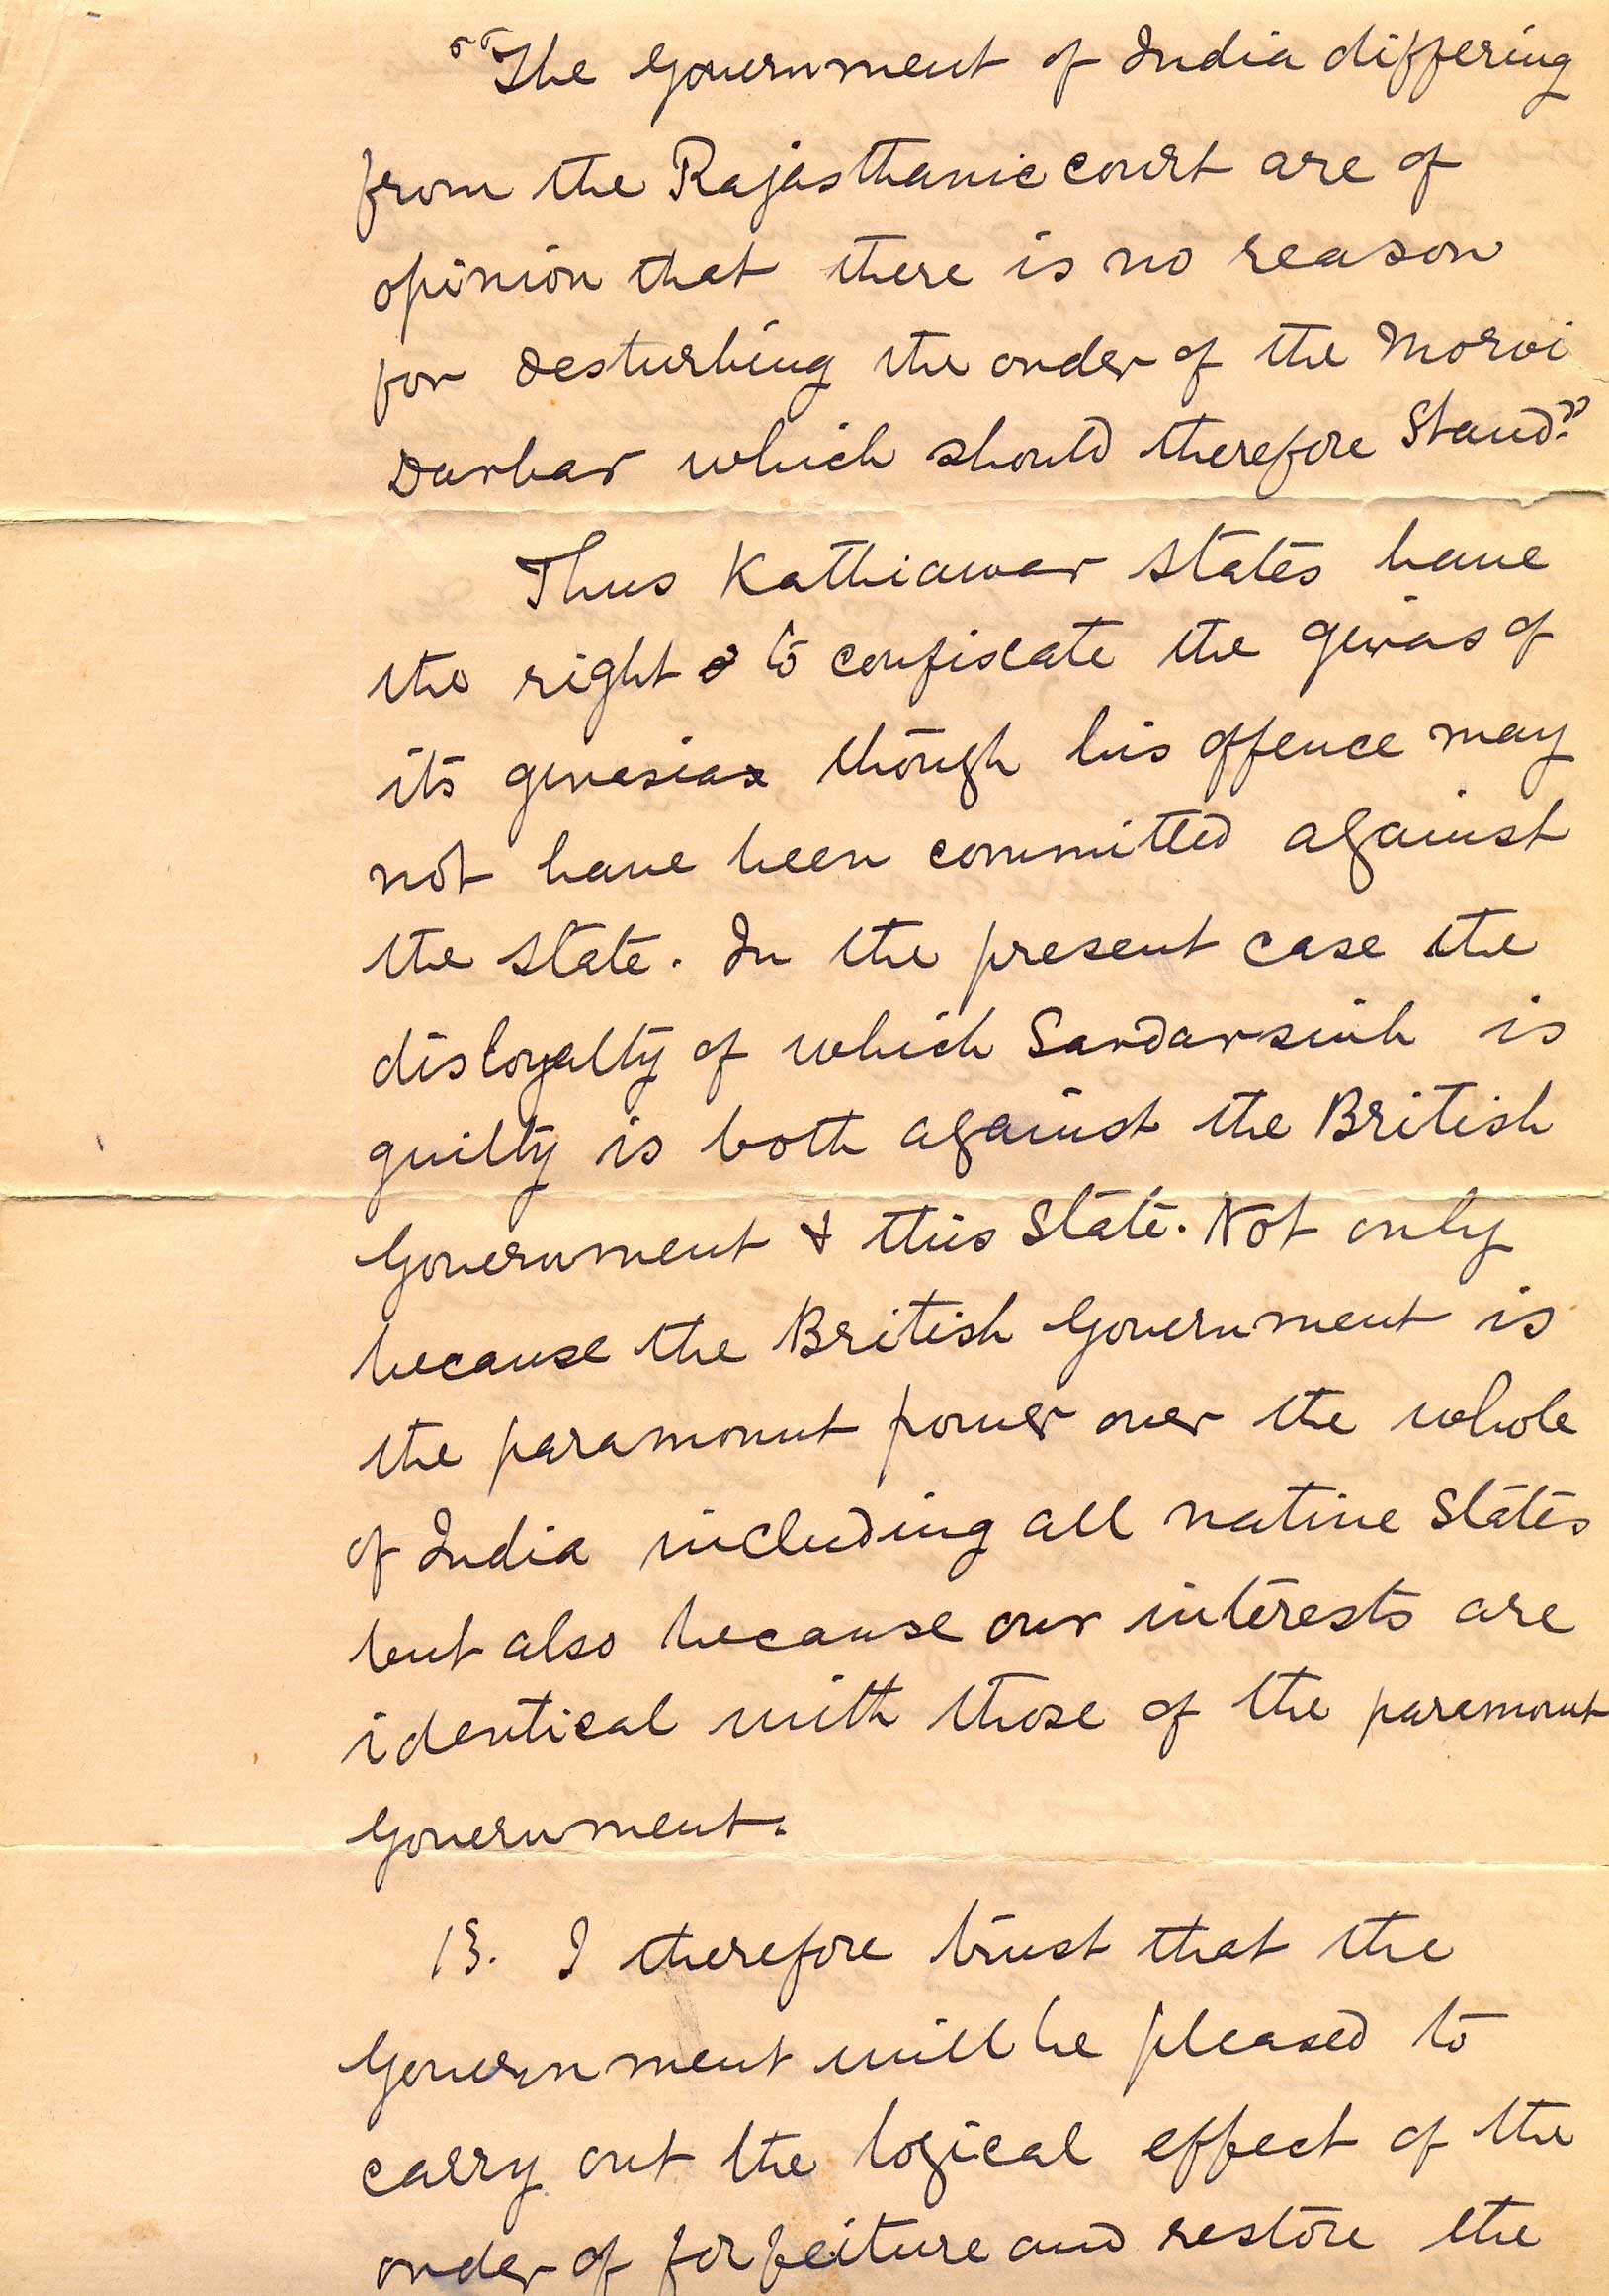 "The Government of India differing
from the Rajasthanic court are of
opinion that there is no reason
for desturbing the order of the Morvi
Darbar which should therefore stand."
Thus Kathiawar states have
the right to confiscate the giras of
its girasias though his offence may
not have been committed against
the state. In the present case the
disloyalty of which Sardarsinh is
guilty is both against the British
Government & this State. Not only
because the British Government is
the paramount power over the whole
of India including all native States
but also because our interests are
identical with those of the paramount
Government.
13. I therefore trust that the
Government will be pleased to
carry out the logical effect of the
order of forfeiture and restore the